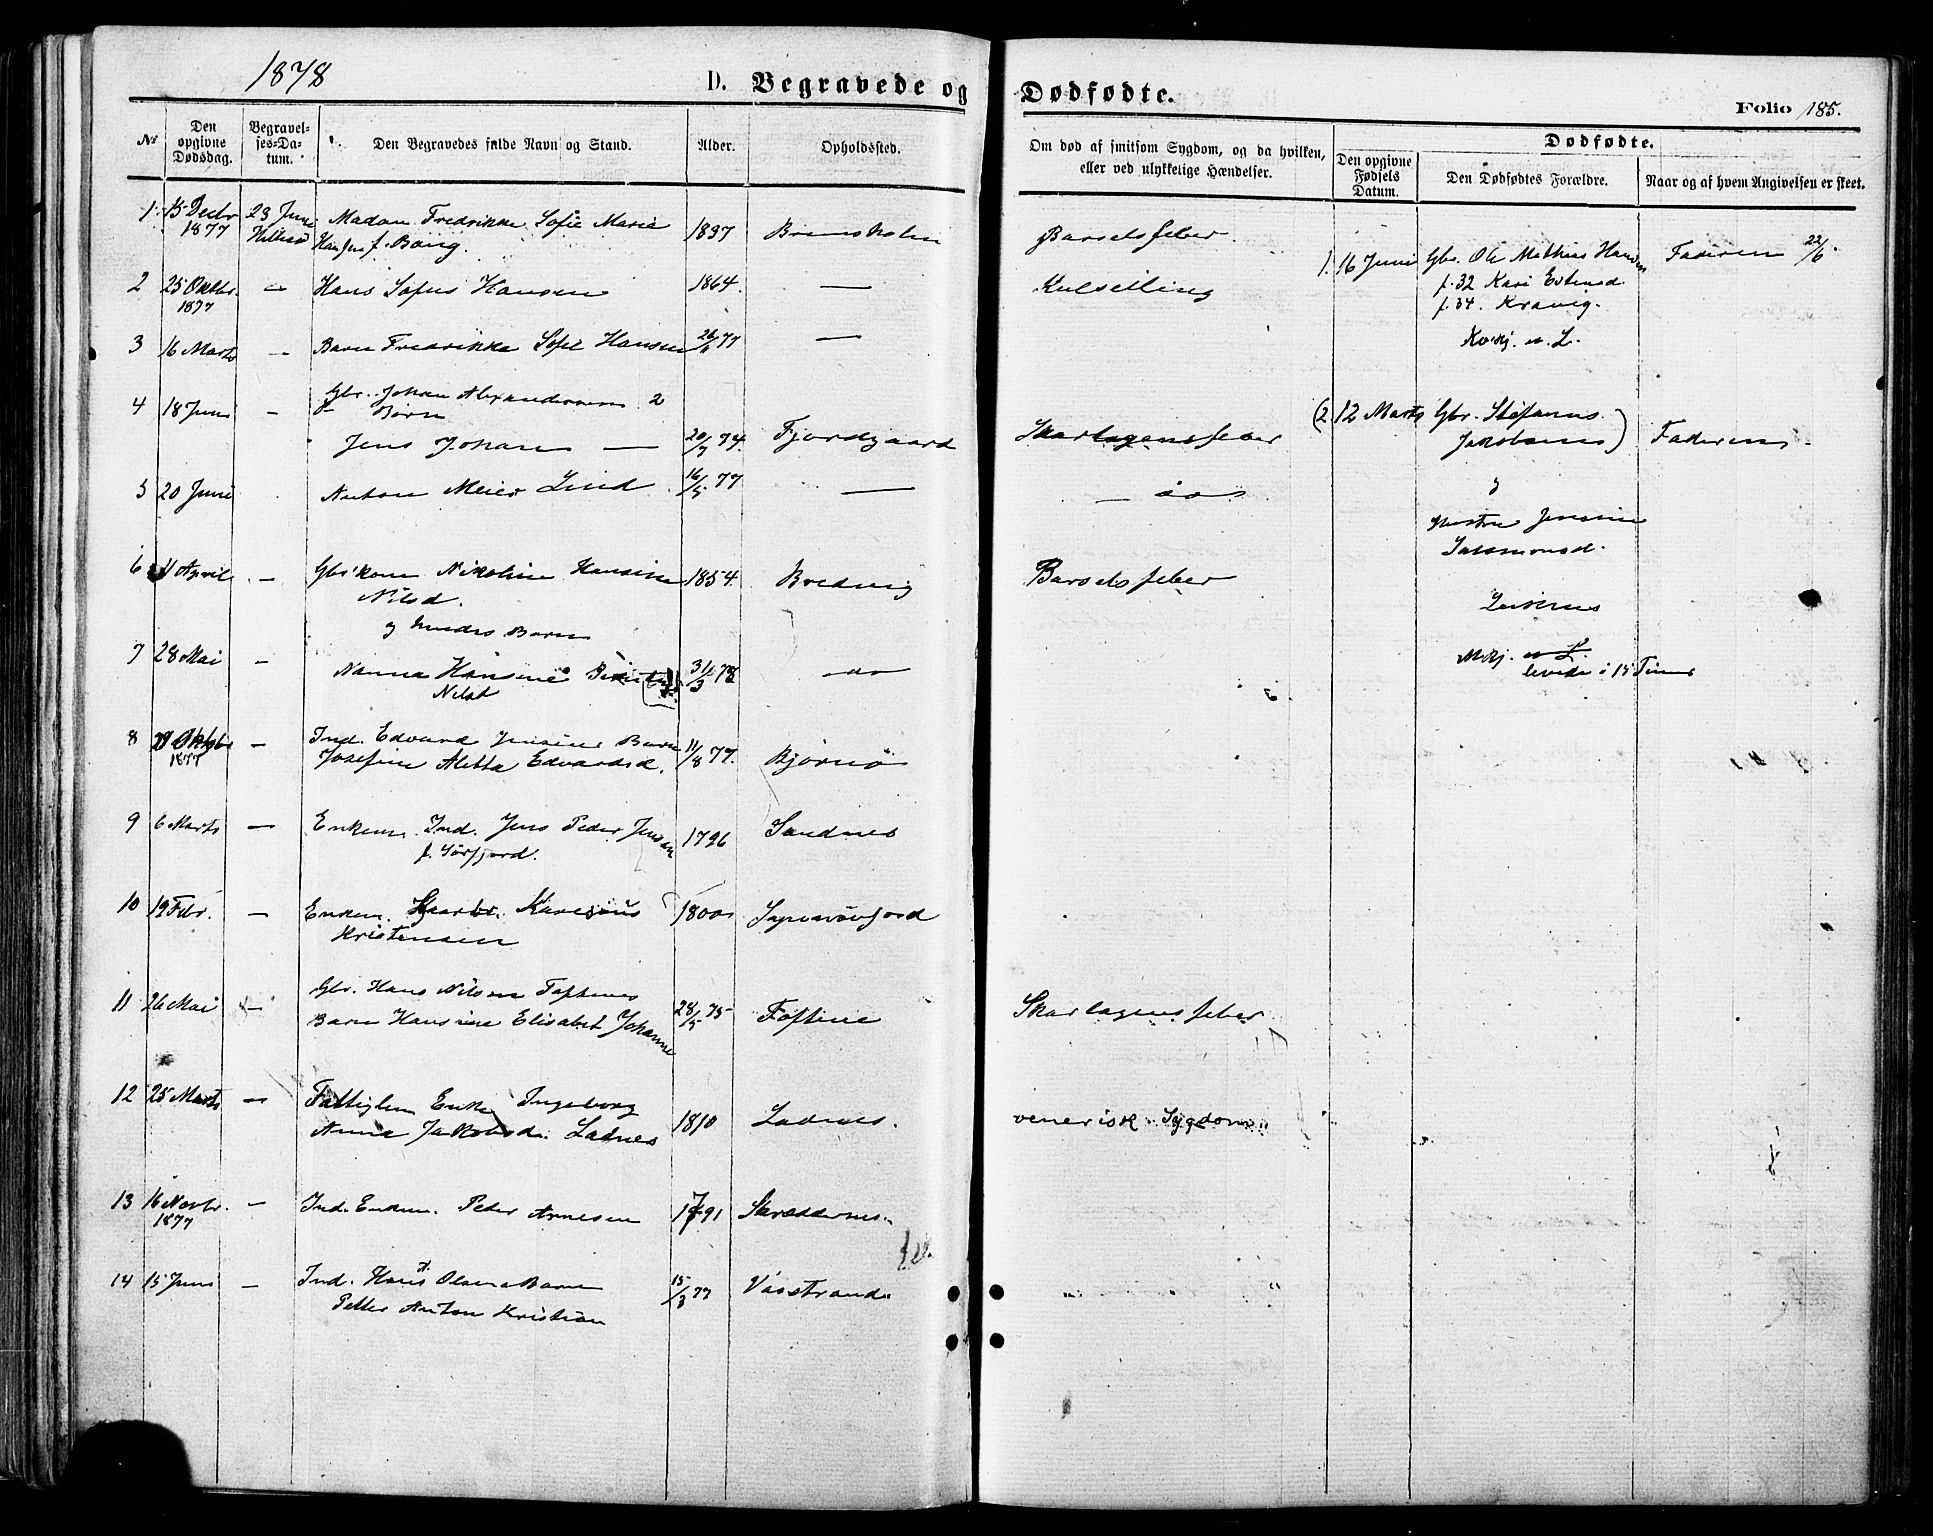 1878
D. Begravede og Dødfødte.
Folio 185.
No
Den opgivne Dødsdag.
Begravel-
ses-Da-
tum.
Den Begravedes fulde Navn og Stand.
Alder.
Opholdssted.
Om død af smitsom Sygdom, og da hvilken,
eller ved ulykkelige Hændelser.
Dødfødte.
Den opgivne
Fødsels
Datum.
Den Dødfødtes Forældre.
Naar og af hvem Angivelsen er skeet.
1 15 Decbr 23 Juni Madam Fredrikke Sofie Marie 1837
1877 Hansen f. Bang.
Barselsfeber
2 25 Oktbr. — Hans Sofus Hansen 1864. —
1877
3 16 Marts — Barn Fredrikke Sofie Hansen 77 —
4 18 Juni — Gbr. Johan Alexandersens 2
Børn
Jens Johan — 20/7 74. Fjordgaard Skarlagensfeber
5 20 Juni Anton Meier Lind 16/5 77 —
6 11 April — Nikoline Hansine 1854. Bredvig Barselsfeber
Nilsd.
og hendes Barn
7 28 Mai — Nanna Hansine 31/3 78
Nilsd
8 Oktbr — Ind. Edvard Jensens Barn 11/8 77. Bjørnø
1877 Josefine Aletta Edvardsd.
9 6 Marts — Enkem. Ind. Jens Peder Jensen 1796 Sandnes
f. Sørfjord.
10 19 Febr. — Enkem. Karesius 1800
Kristensen
11 26 Mai — Gbr. Hans Nilsen Toftenes
Barn Hansine Elisabet Johanne 28/5 75 Skarlagensfeber
12 25 Marts — Fattiglem Enke Ingeborg
Anna Jakobsd. Ladnes 1810 Ladnes. venerisk Sygdom
13 16 Novbr. — Ind. Enkem. Peder Arnesen 1791
1877
14 15 Juni — Ind. Hans A. Olsens Barn 15/3 77 Vasstrand
Petter Anton Kristian
1. 16 Juni Gbr. Ole Mathias Hansen Faderen 22/6
f. 32 Kari Estensd
f. 34. Kravig.
(2. 12 Marts Gbr. Stefanus
Jakobsens) Faderen
og
Hustru Jensine
Salamonsd.
levede i 15 Timer